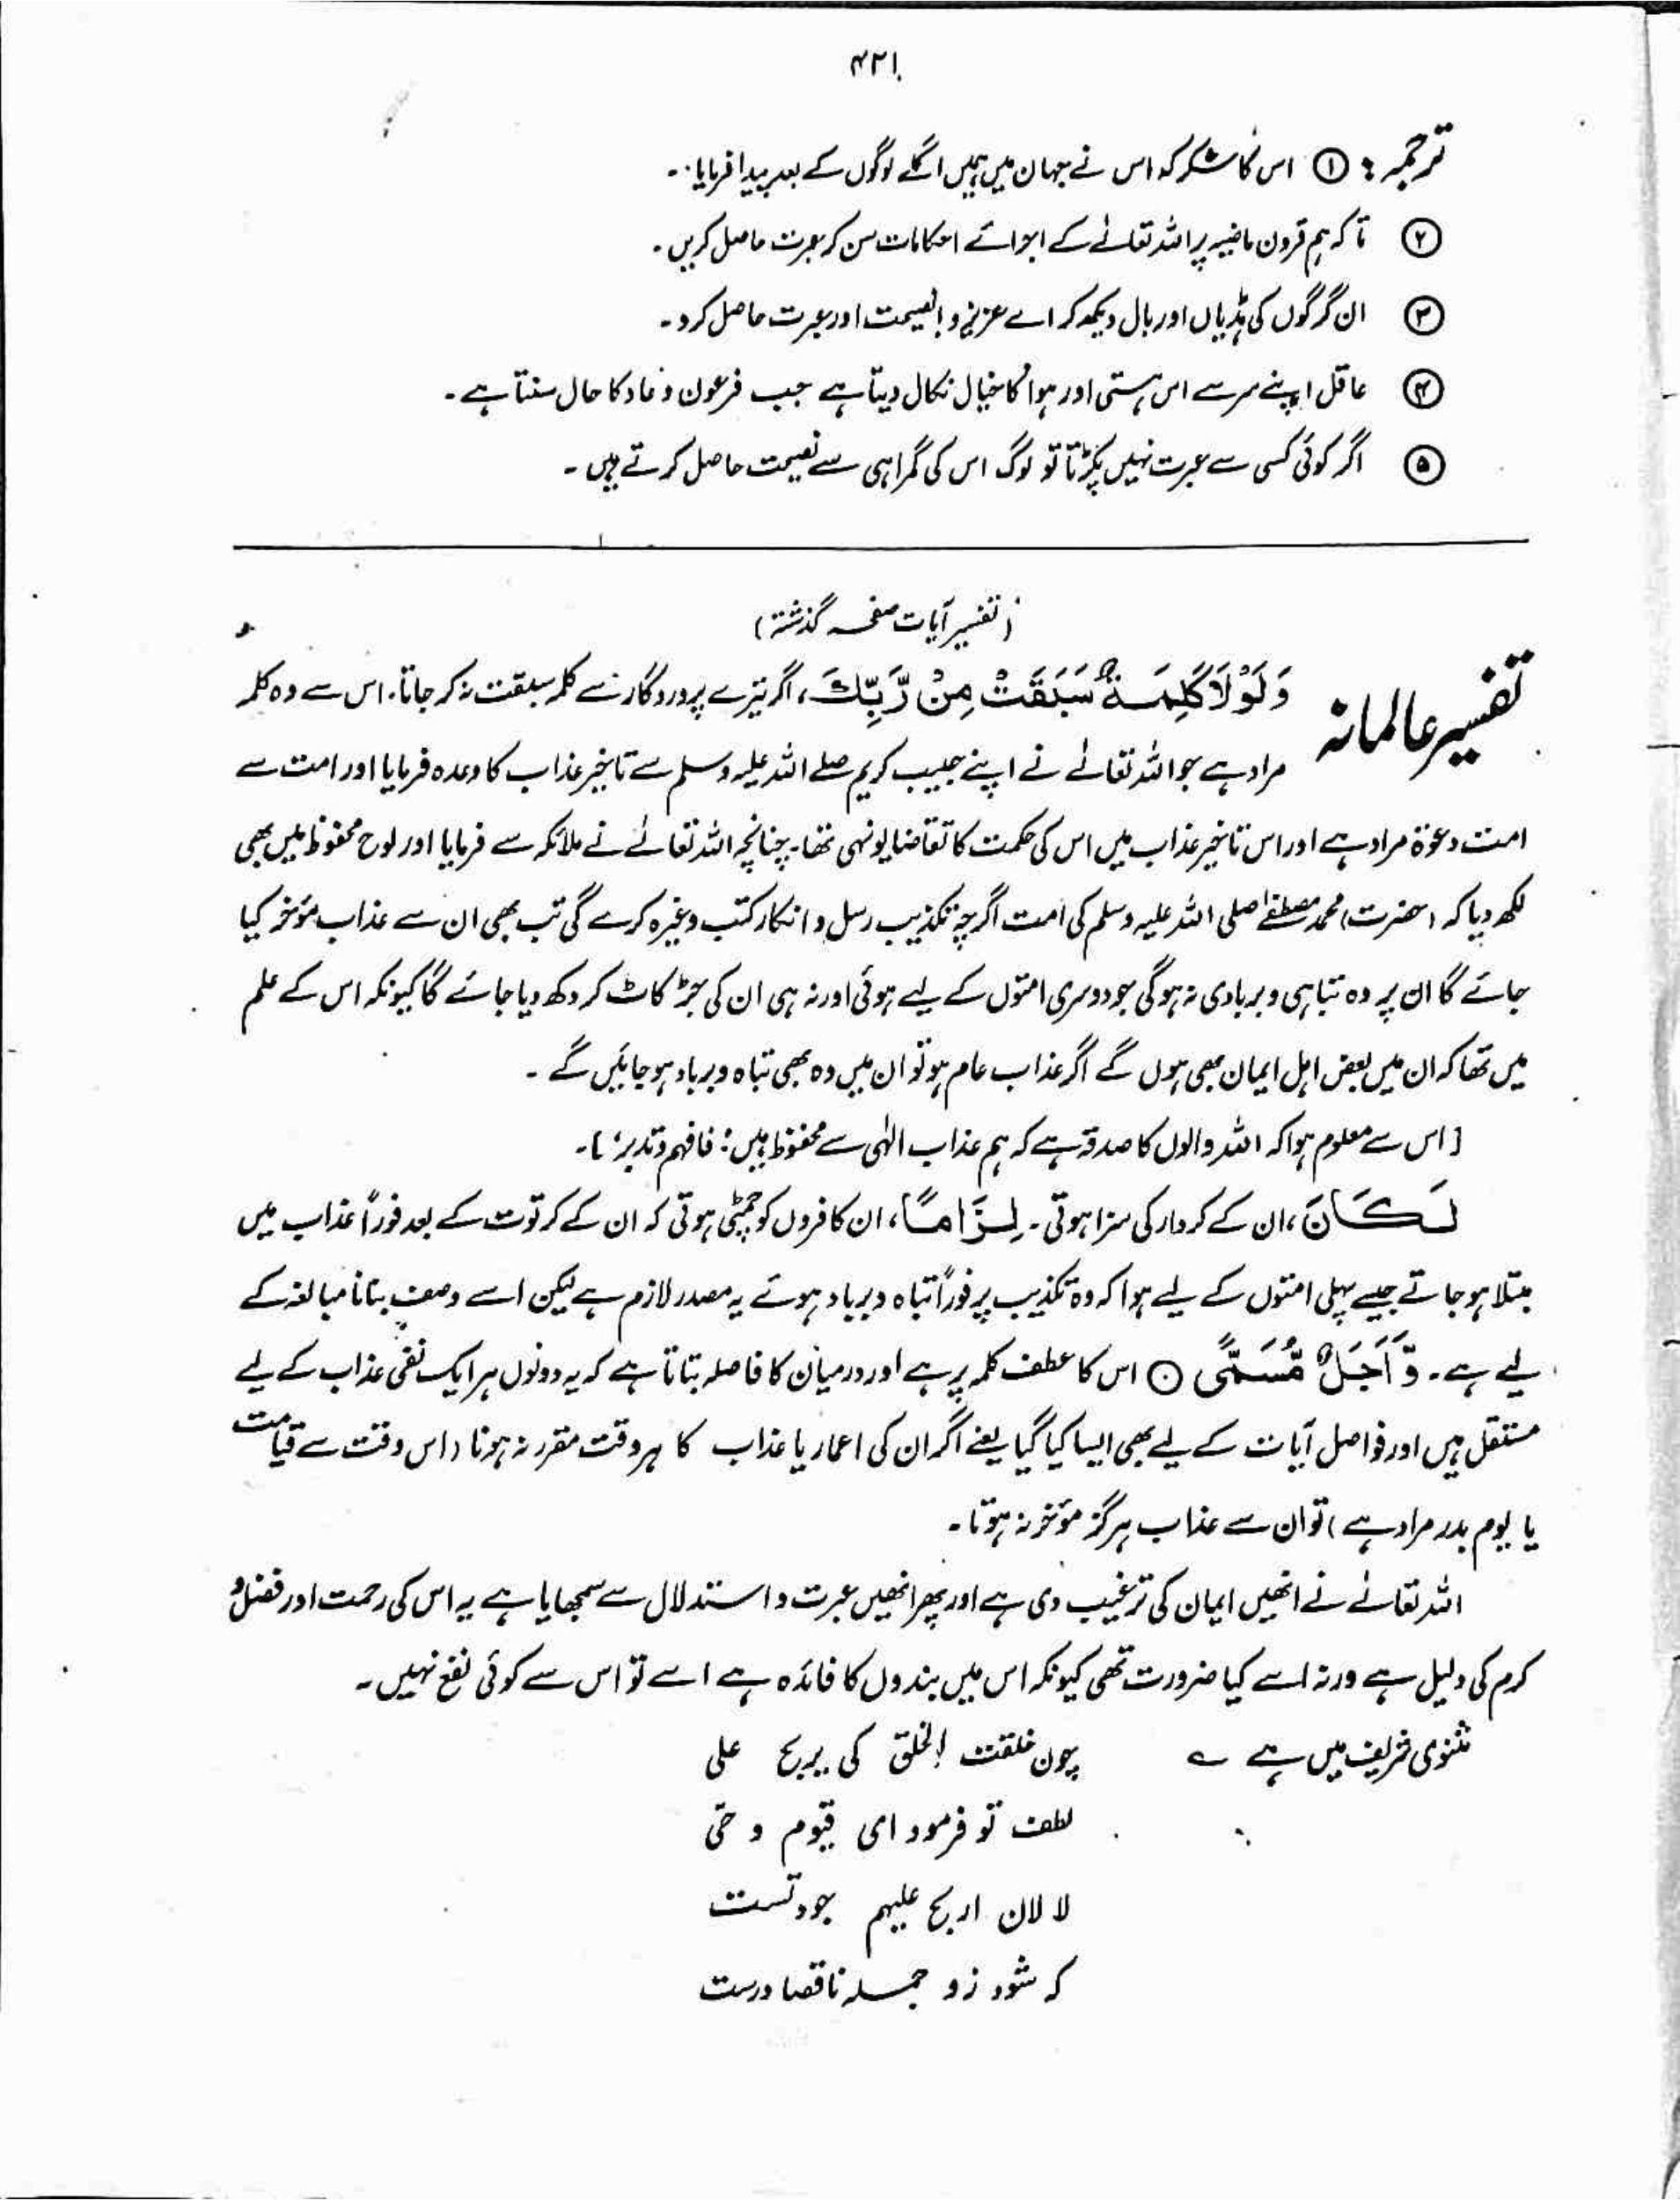 ۴۲۱
ترجمہ : ① اس کا شکر کہ اس نے جہان میں ہمیں اگلے لوگوں کے بعد پیدا فرمایا۔
② تاکہ ہم قرون ماضیہ پر اللہ تعالٰے کے اجرائے احکامات سن کر عبرت حاصل کریں۔
③ ان گرگوں کی ہڈیاں اور بال دیکھ کر اے عزیزو! نصیحت اور عبرت حاصل کرو۔
④ عاقل اپنے سر سے اس ہستی اور ہوا کا خیال نکال دیتا ہے جب فرعون و عاد کا حال سنتا ہے۔
⑤ اگر کوئی کسی سے عبرت نہیں پکڑتا تو لوگ اس کی گمراہی سے نصیحت حاصل کرتے ہیں۔
(تفسیر آیات صفحہ گذشتہ)
تفسیر عالمانہ وَلَوْلَا كَلِمَةٌ سَبَقَتْ مِنْ رَّبِّكَ، اگر تیرے پروردگار سے کلمہ سبقت نہ کر جاتا۔ اس سے وہ کلمہ
مراد ہے جو اللہ تعالٰے نے اپنے حبیب کریم صلے اللہ علیہ وسلم سے تاخیر عذاب کا وعدہ فرمایا اور امت سے
امت دعوۃ مراد ہے اور اس تاخیر عذاب میں اس کی حکمت کا تقاضا یونہی تھا۔ چنانچہ اللہ تعالٰے نے ملائکہ سے فرمایا اور لوح محفوظ میں بھی
لکھ دیا کہ (حضرت) محمد مصطفےٰ صلی اللہ علیہ وسلم کی امت اگرچہ تکذیب رسل و انکار کتب وغیرہ کرے گی تب بھی ان سے عذاب مؤخر کیا
جائے گا ان پر وہ تباہی و بربادی نہ ہوگی جو دوسری امتوں کے لیے ہوئی اور نہ ہی ان کی جڑ کاٹ کر رکھ دیا جائے گا کیونکہ اس کے علم
میں تھا کہ ان میں بعض اہل ایمان بھی ہوں گے اگر عذاب عام ہو تو ان میں وہ بھی تباہ و برباد ہو جائیں گے۔
[اس سے معلوم ہوا کہ اللہ والوں کا صدقہ ہے کہ ہم عذاب الٰہی سے محفوظ ہیں: فافہم و تدبر]۔
لَكَانَ، ان کے کردار کی سزا ہوتی۔ لِزَامًا، ان کافروں کو چمٹی ہوتی کہ ان کے کرتوت کے بعد فوراً عذاب میں
مبتلا ہو جاتے جیسے پہلی امتوں کے لیے ہوا کہ وہ تکذیب پر فوراً تباہ و برباد ہوئے یہ مصدر لازم ہے لیکن اسے وصف بتانا مبالغہ کے
لیے ہے۔ وَّاَجَلٌ مُّسَمًّى ○ اس کا عطف کلمہ پر ہے اور درمیان کا فاصلہ بتاتا ہے کہ یہ دونوں ہر ایک نفی عذاب کے لیے
مستقل ہیں اور فواصل آیات کے لیے بھی ایسا کیا گیا یعنے اگر ان کی اعمار یا عذاب کا ہر وقت مقرر نہ ہوتا (اس وقت سے قیامت
یا یوم بدر مراد ہے) تو ان سے عذاب ہرگز مؤخر نہ ہوتا۔
اللہ تعالٰے نے انھیں ایمان کی ترغیب دی ہے اور پھر انھیں عبرت و استدلال سے سمجھایا ہے یہ اس کی رحمت اور فضل و
کرم کی دلیل ہے ورنہ اسے کیا ضرورت تھی کیونکہ اس میں بندوں کا فائدہ ہے اسے تو اس سے کوئی نفع نہیں۔
مثنوی شریف میں ہے ؎ چون خلقت الخلق کی یربح علی
لطف تو فرمود ای قیوم و حی
لا لان اربح علیہم جود تست
کہ شود زو جملہ ناقصہا درست